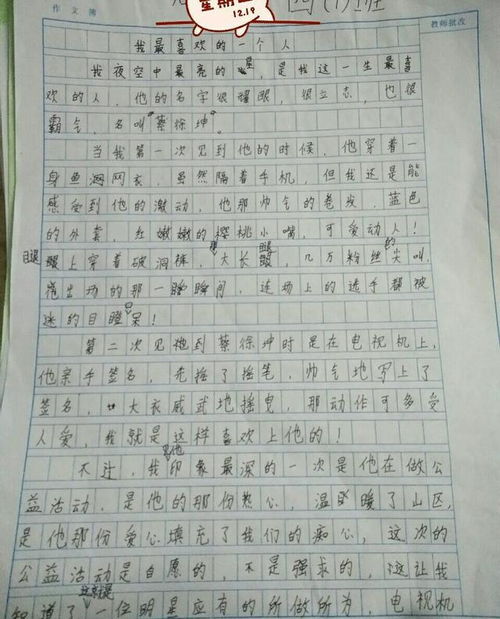 星期三
12.19
四(1)班
作文簿
教师批改
我最喜欢的一个人
我夜空中最亮的星,是我这一生最喜
欢的人,他的名字很耀眼,很立志,也很
霸气,名叫“蔡徐坤”。
当我第一次见到他的时候,他穿着一
身鱼网网衣,虽然隔着手机,但我还是能
感受到他的激动,他那帅气的卷发,蓝色
的外套,红嫩嫩的樱桃小嘴,可爱动人!
腿上穿着破洞裤,大长腿,几万粉丝的尖叫,
出动的那一瞬间,运动上的选手都被
迷的目瞪口呆!
第二次见到蔡徐坤时是在电视机上,
他亲手签名,先摇了摇笔,帅气地写上了
签名,大衣威武地摇曳,那动作可多受
人爱,我就是这样喜欢上他的!
不过,我印象最深的一次是他在做公
益活动,是他的那份热心,温暖了山区,
是他那份爱心填充了我们的痴心,这次的
公益活动是自愿的,不是强求的,这让我
知道了这就是一位明星应有的所做所为,电视机